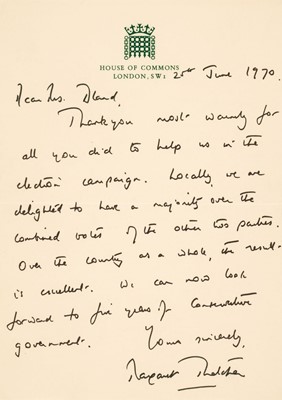 HOUSE OF COMMONS
LONDON, SW1
June 1970.
Dear Mrs. Bland,
Thank you most warmly for
all you did to help us in the
election campaign. Locally we are
delighted to have a majority over the
combined votes of the other two parties.
Over the country as a whole, the result
is excellent. We can now look
forward to five years of Conservative
government.
Yours sincerely,
Margaret Thatcher